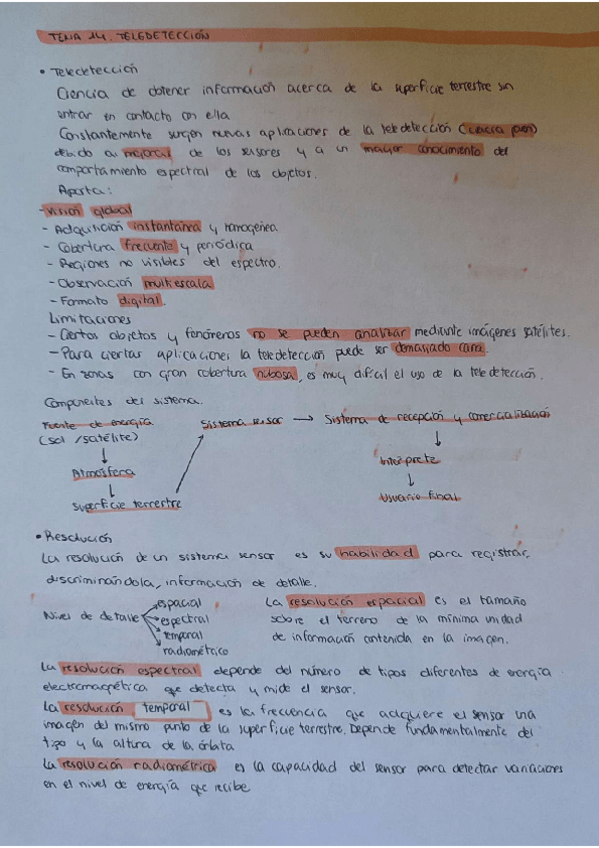 TEMA 14. TELEDETECCIÓN
• Teledetección
Ciencia de obtener información acerca de la superficie terrestre sin
entrar en contacto con ella.
Constantemente surgen nuevas aplicaciones de la teledetección (ciencia joven)
debido a mejoras de los sensores y a un mayor conocimiento del
comportamiento espectral de los objetos.
Aporta:
- Visión global
- Adquisición instantánea y homogénea
- Cobertura frecuente y periódica
- Regiones no visibles del espectro.
- Observación multiescala
- Formato digital.
Limitaciones
- Ciertos objetos y fenómenos no se pueden analizar mediante imágenes satélites.
- Para ciertas aplicaciones la teledetección puede ser demasiado cara.
- En zonas con gran cobertura nubosa, es muy difícil el uso de la teledetección.
Componentes del sistema.
Fuente de energía (sol/satélite) → Atmósfera → Superficie terrestre → Sistema sensor → Sistema de recepción y comercialización → Intérprete → Usuario final
• Resolución
La resolución de un sistema sensor es su habilidad para registrar,
discriminándola, información de detalle.
Nivel de detalle
espacial
espectral
temporal
radiométrico
La resolución espacial es el tamaño
sobre el terreno de la mínima unidad
de información contenida en la imagen.
La resolución espectral depende del número de tipos diferentes de energía
electromagnética que detecta y mide el sensor.
La resolución temporal es la frecuencia que adquiere el sensor una
imagen del mismo punto de la superficie terrestre. Depende fundamentalmente del
tipo y la altura de la órbita
La resolución radiométrica es la capacidad del sensor para detectar variaciones
en el nivel de energía que recibe